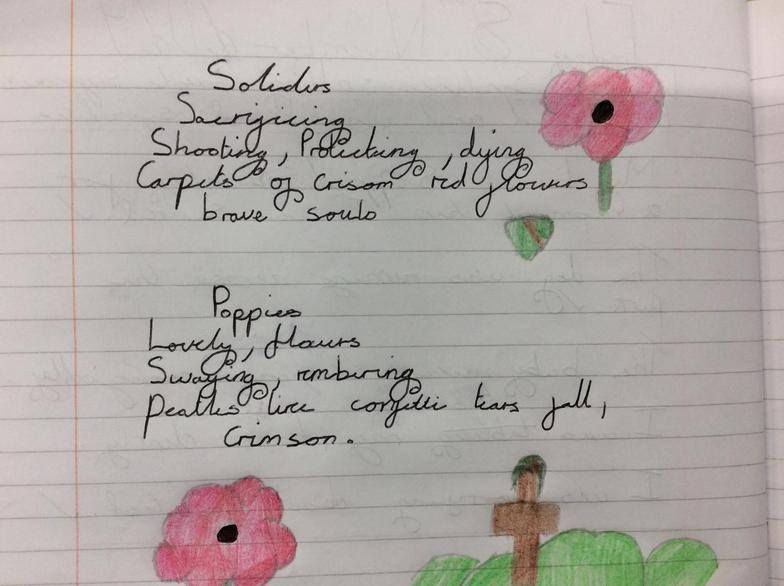 Soliders
Sacrificing
Shooting, Protecting, dying
Carpets of crisom red flowers
brave souls
Poppies
Lovely, flours
Swaying, rembiring
Peatles like confetti tears fall,
Crimson.